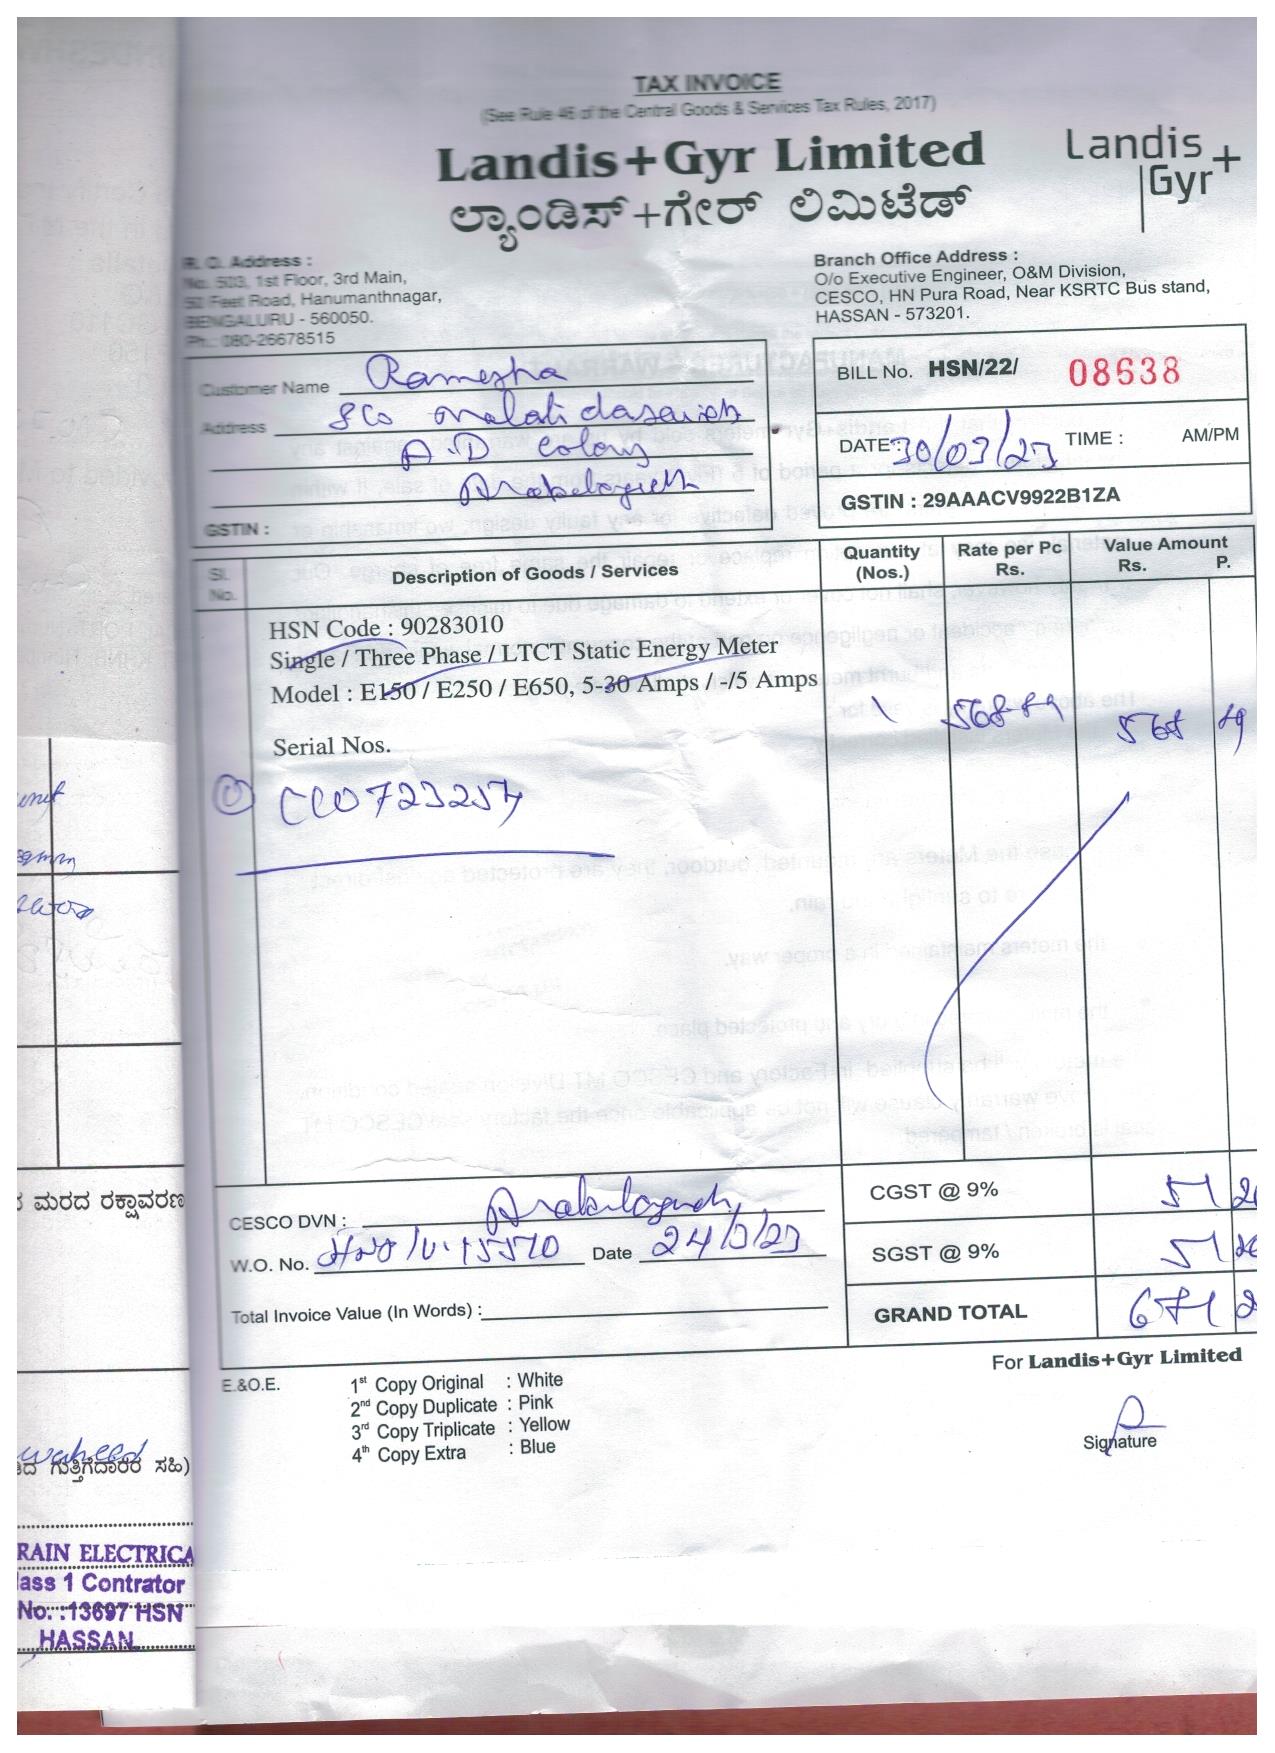 TAX INVOICE
(See Rule 46 of the Central Goods & Services Tax Rules, 2017)
Landis+Gyr Limited
ಲ್ಯಾಂಡಿಸ್+ಗೇರ್ ಲಿಮಿಟೆಡ್
Landis
Gyr+
R. O. Address :
No. 503, 1st Floor, 3rd Main,
50 Feet Road, Hanumanthnagar,
BENGALURU - 560050.
Ph.: 080-26678515
Branch Office Address :
O/o Executive Engineer, O&M Division,
CESCO, HN Pura Road, Near KSRTC Bus stand,
HASSAN - 573201.
Customer Name Ramesha
Address
A.D Colony
GSTIN :
BILL No. HSN/22/ 08638
DATE : 30/03/23 TIME : AM/PM
GSTIN : 29AAACV9922B1ZA
Sl. No. Description of Goods / Services Quantity (Nos.) Rate per Pc Rs. Value Amount Rs. P.
HSN Code : 90283010
Single / Three Phase / LTCT Static Energy Meter
Model : E150 / E250 / E650, 5-30 Amps / -/5 Amps
1 568 89 568 89
Serial Nos.
CESCO DVN :
W.O. No. Date 24/3/23
Total Invoice Value (In Words) :
CGST @ 9% 51
SGST @ 9% 51
GRAND TOTAL 671
For Landis+Gyr Limited
E.&O.E.
1st Copy Original : White
2nd Copy Duplicate : Pink
3rd Copy Triplicate : Yellow
4th Copy Extra : Blue
Signature
ಮರದ ರಕ್ಷಾವರಣ
ಗುತ್ತಿಗೆದಾರರ ಸಹಿ)
RAIN ELECTRICA
lass 1 Contrator
No. :13697 HSN
HASSAN